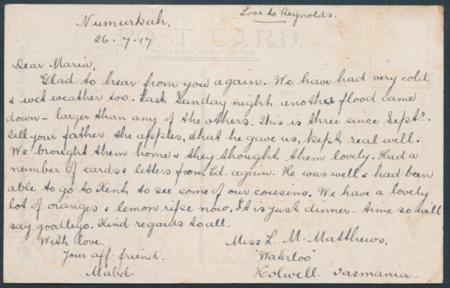 Numurkah.
Love to Reynolds.
26.7.17
Dear Maria,
Glad to hear from you again. We have had very cold
& wet weather too. Last Sunday night another flood came
down - larger than any of the others. This is three since Sept.
Tell your father the apples, that he gave us, kept real well.
We brought them home & they thought them lovely. Had a
number of cards & letters from Ed. again. He was well & had been
able to go to to see some of our cousins. We have a lovely
lot of oranges & lemon ripe now. It is just dinner-time so will
say goodbye. Kind regards to all.
With love.
Your aff. friend.
Mabel.
Miss L. M. Matthews,
"Waterloo"
Holwell Tasmania.